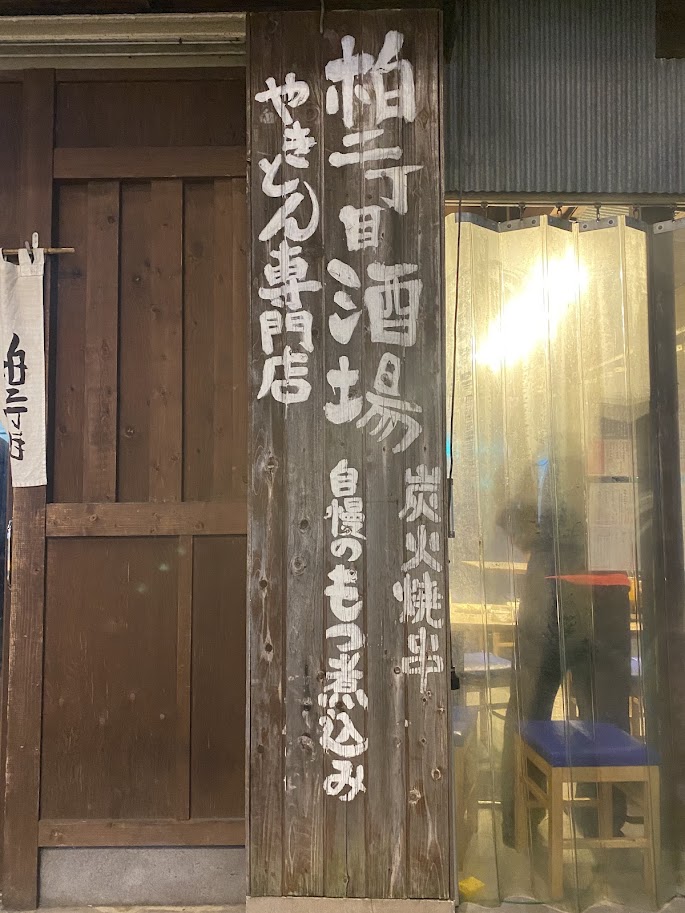 柏二丁目酒場
炭火焼串
自慢のもつ煮込み
やきとん専門店
柏二丁目